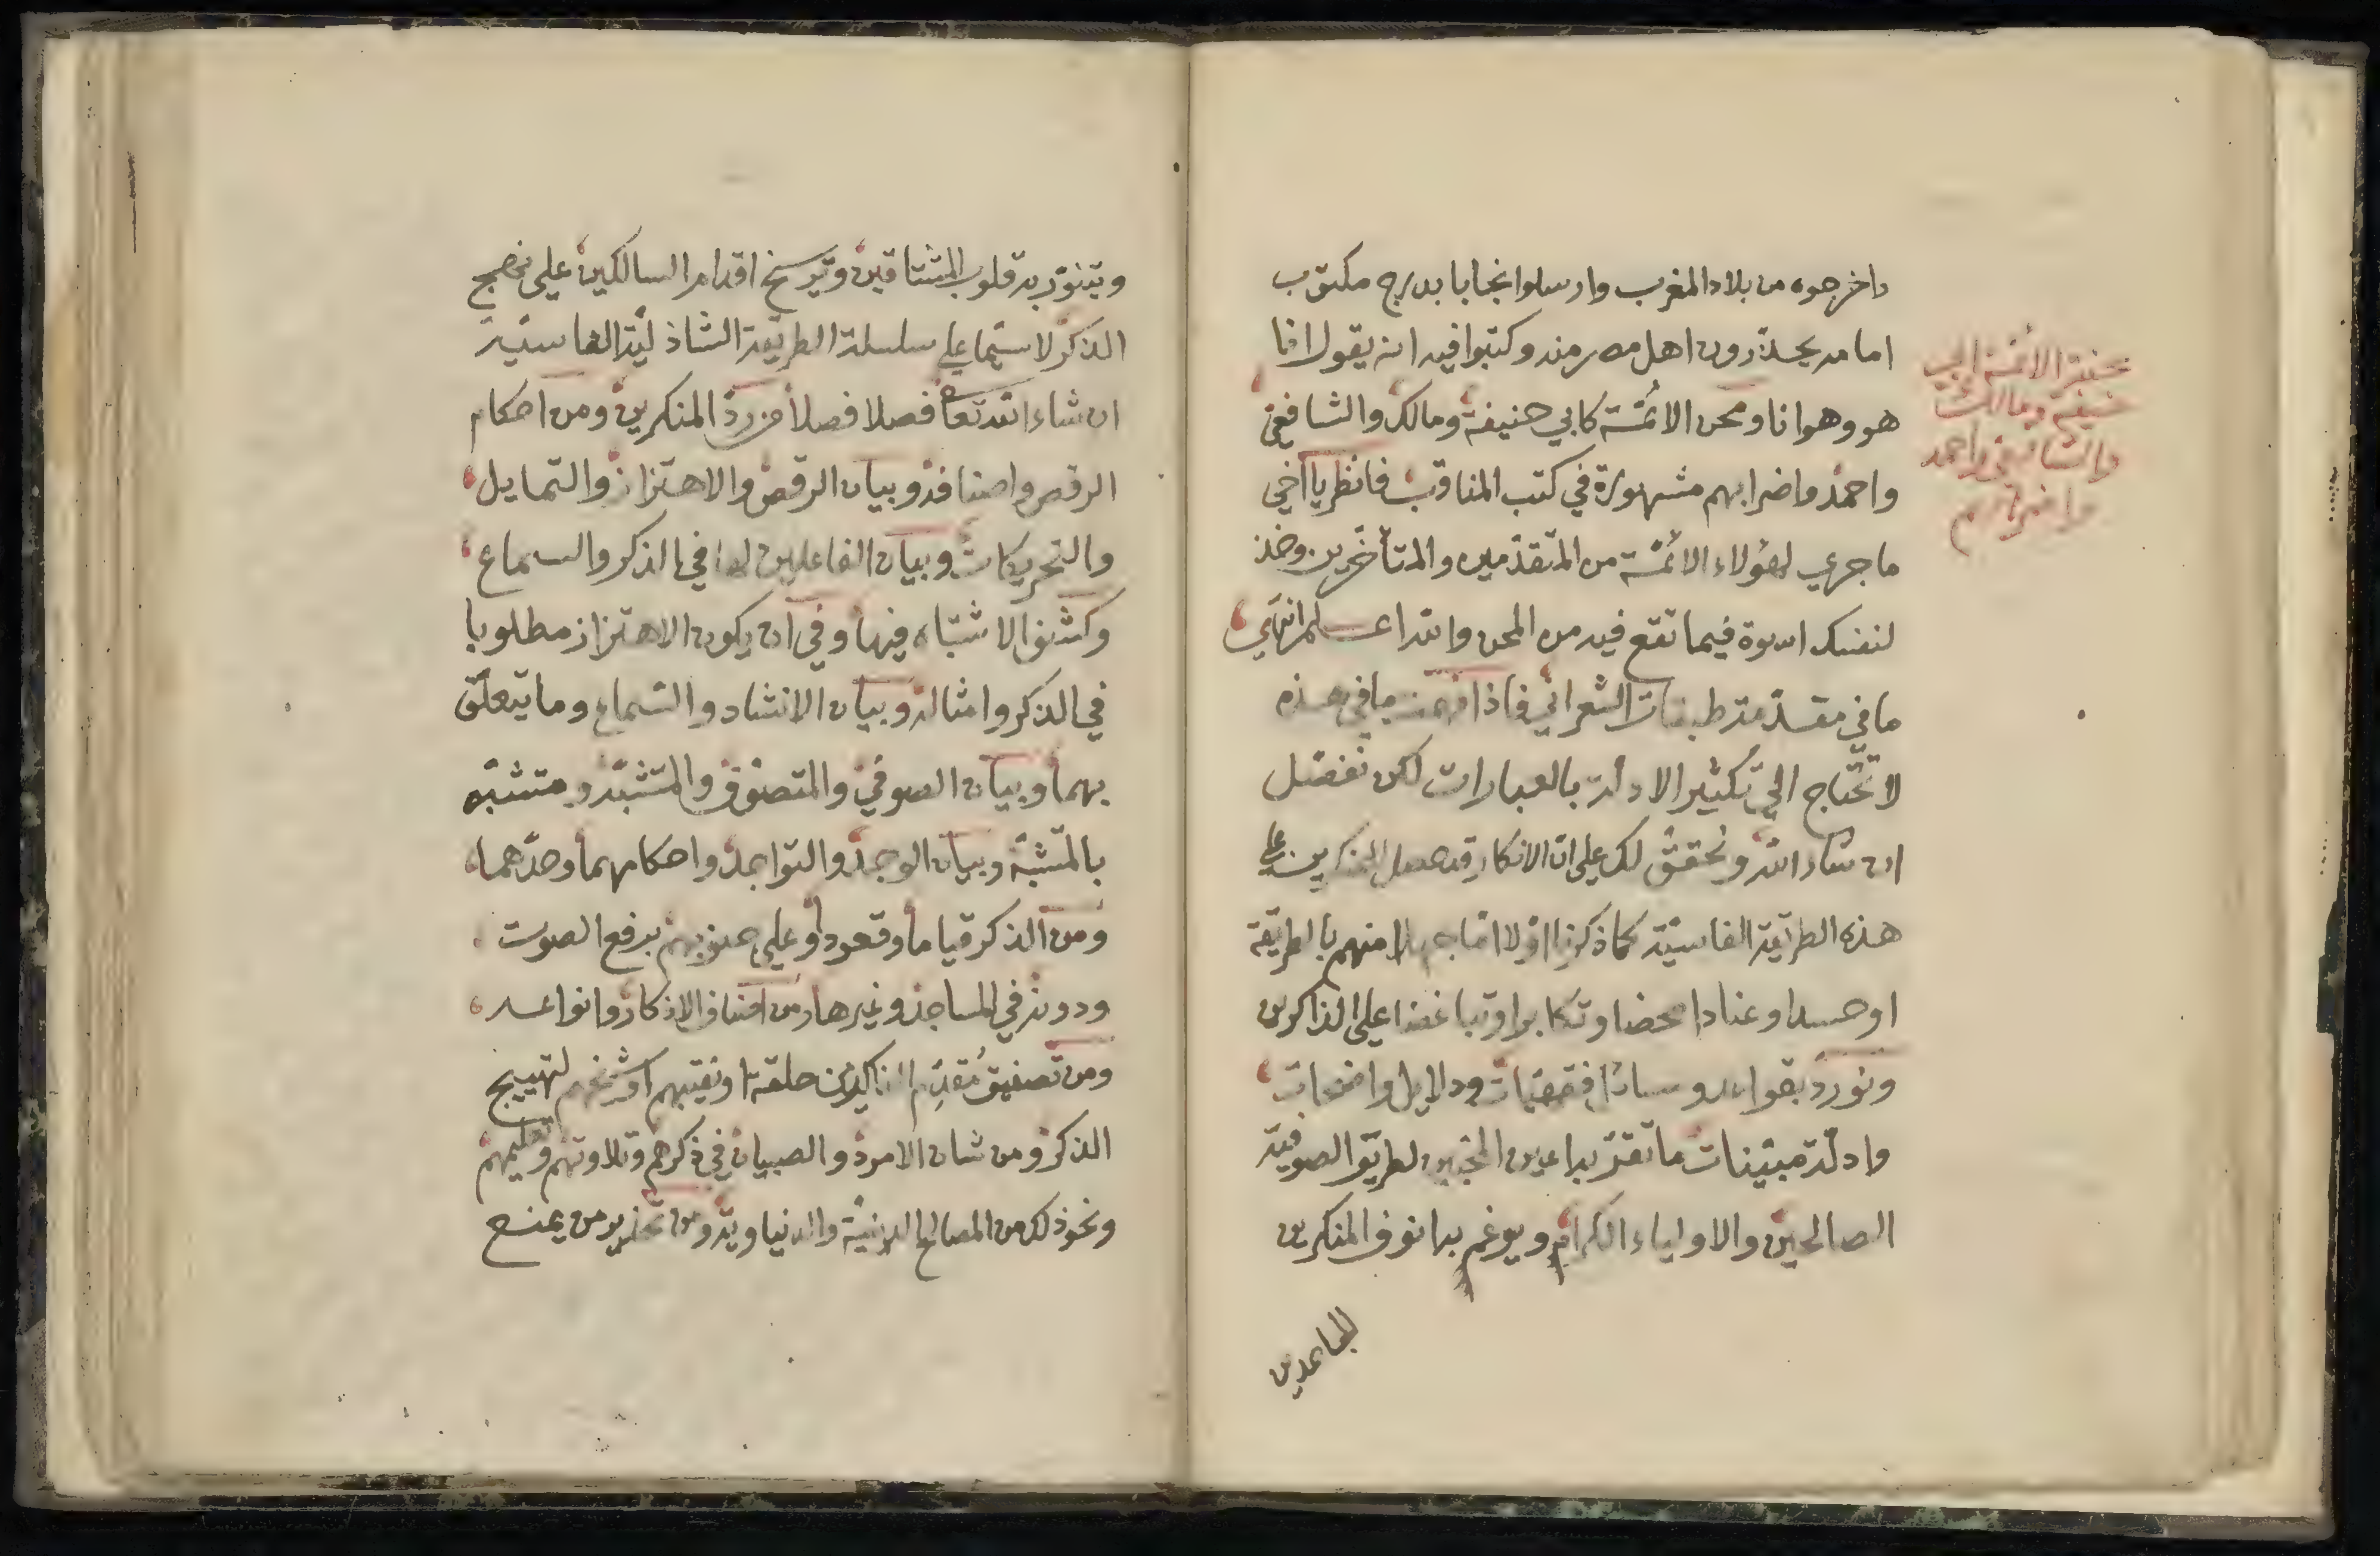 واخرجوه من بلاد المغرب وارسلوا نجابا بدرج مكتوب
امامه يحذّرون اهل مصر منه وكتبوا فيه انه يقول انا
هو وهو انا ومحن الائمّة كابي حنيفة ومالك والشافعي
واحمد واضرابهم مشهورة في كتب المناقب فانظر يا اخي
ما جرى لهؤلاء الائمّة من المتقدّمين والمتأخّرين وخذ
لنفسك اسوة فيما تقع فيه من المحن والله اعلم انتهى
ما في مقدّمة طبقات الشعراني فاذا فهمت ما في هذه
لا تحتاج الى تكثير الادلة بالعبارات لكن نفصّل
ان شاء الله ونحقق لك على ان الانكار قد حصل المنكرين على
هذه الطريقة الفاسيّة كما ذكرنا اوّلا امّا جهلا منهم بالطريقة
او حسدا وعنادا محضا وتكابرا وتباغضا على الذاكرين
ونورد بقواعد ومسائل فقهيّات ودلايل واضحات
وادلّة مبيّنات ما تقرّ به اعين المحبين لطريق الصوفية
الصالحين والاولياء الكرام ويرغم به انوف المنكرين
الجاحدين
محنة الائمّة ابي
حنيفة ومالك
والشافعي واحمد
واضرابهم
ويتنوّر به قلوب المشتاقين وتترسخ اقدام السالكين على نهج
الذكر لا سيّما على سلسلة الطريقة الشاذليّة الفاسيّة
ان شاء الله تعا فصلا فصلا من ردّ المنكرين ومن احكام
الرقص واصنافه وبيان الرقص والاهتزاز والتمايل
والتحريكات وبيان الفاعلين لها في الذكر والسماع
وكشف الاشتباه فيها وفي ان يكون الاهتزاز مطلوبا
في الذكر وامثاله وبيان الانشاد والسّماع وما يتعلّق
بهما وبيان الصوفي والمتصوّف والمتشبّه ومتشبّه
بالمتشبّه وبيان الوجد والتواجد واحكامهما وحدّهما
ومن الذكر قياما وقعودا وعلى جنوبهم برفع الصوت
ودونه في المساجد وغيرها ومن اصناف الاذكار وانواعه
ومن تصفيق مُقدِّم الذاكرين حلقة او نقيبهم او شيخهم لتهييج
الذكر ومن شان الامرد والصبيان في ذكرهم وتلاوتهم وتعليمهم
ونحو ذلك من المصالح الدينيّة والدنياويّة ومن تحذير من يمنع